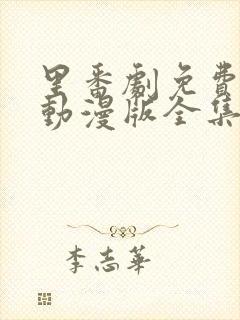 里番劇免費
動漫版全集
李志華